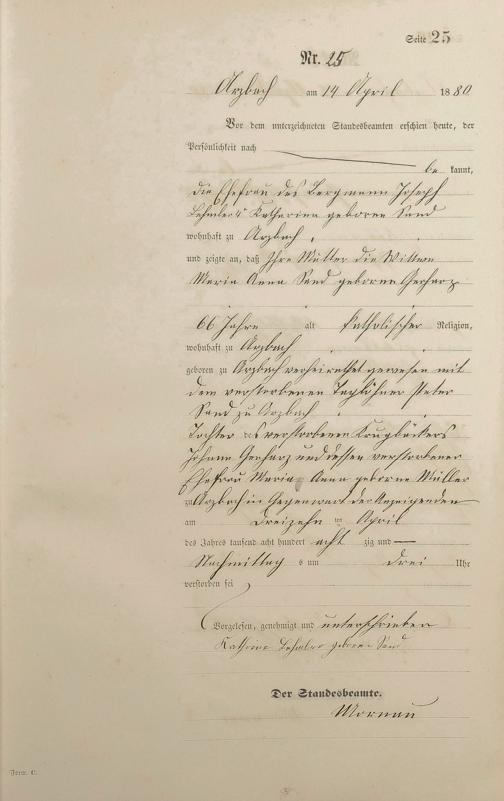 Seite 25
Nr. 25
Arzbach am 14 April 1880
Vor dem unterzeichneten Standesbeamten erschien heute, der
Persönlichkeit nach
be kannt,
die Ehefrau des Bergmann Joseph
Katharina geborene Sand
wohnhaft zu Arzbach,
und zeigte an, daß Ihre Mutter die Wittwe
Maria Anna Sand geborene Gerharz
66 Jahre alt katholischer Religion,
wohnhaft zu Arzbach
geboren zu Arzbach verheirathet gewesen mit
dem verstorbenen Taglöhner Peter
Sand zu Arzbach
Tochter des verstorbenen Krugbäckers
Johann Gerharz und dessen verstorbener
Ehefrau Maria Anna geborene Müller
zu Arzbach in Gegenwart der Anzeigenden
am dreizehn ten April
des Jahres tausend acht hundert acht zig und
Nachmittag s um drei Uhr
verstorben sei
Vorgelesen, genehmigt und unterschrieben
geborene Sand
Der Standesbeamte.
Mornau
Form. C.